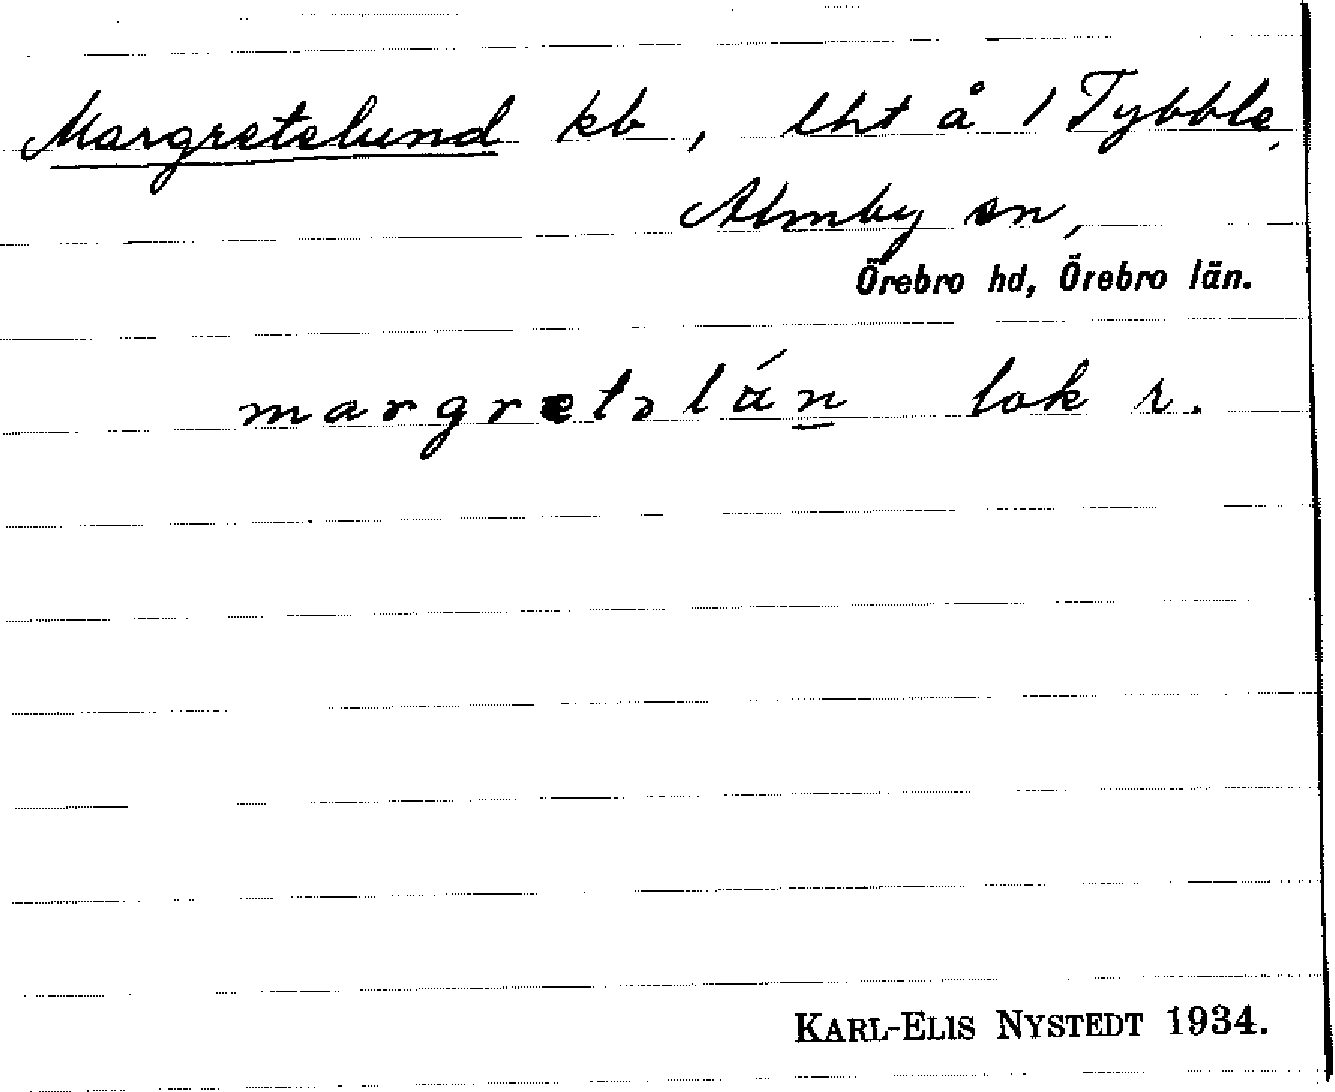 Margretelund kb, lht å 1 Tybble,
Almby sn,
Örebro hd, Örebro län.
margretslán lok r.
KARL-ELIS NYSTEDT 1934.